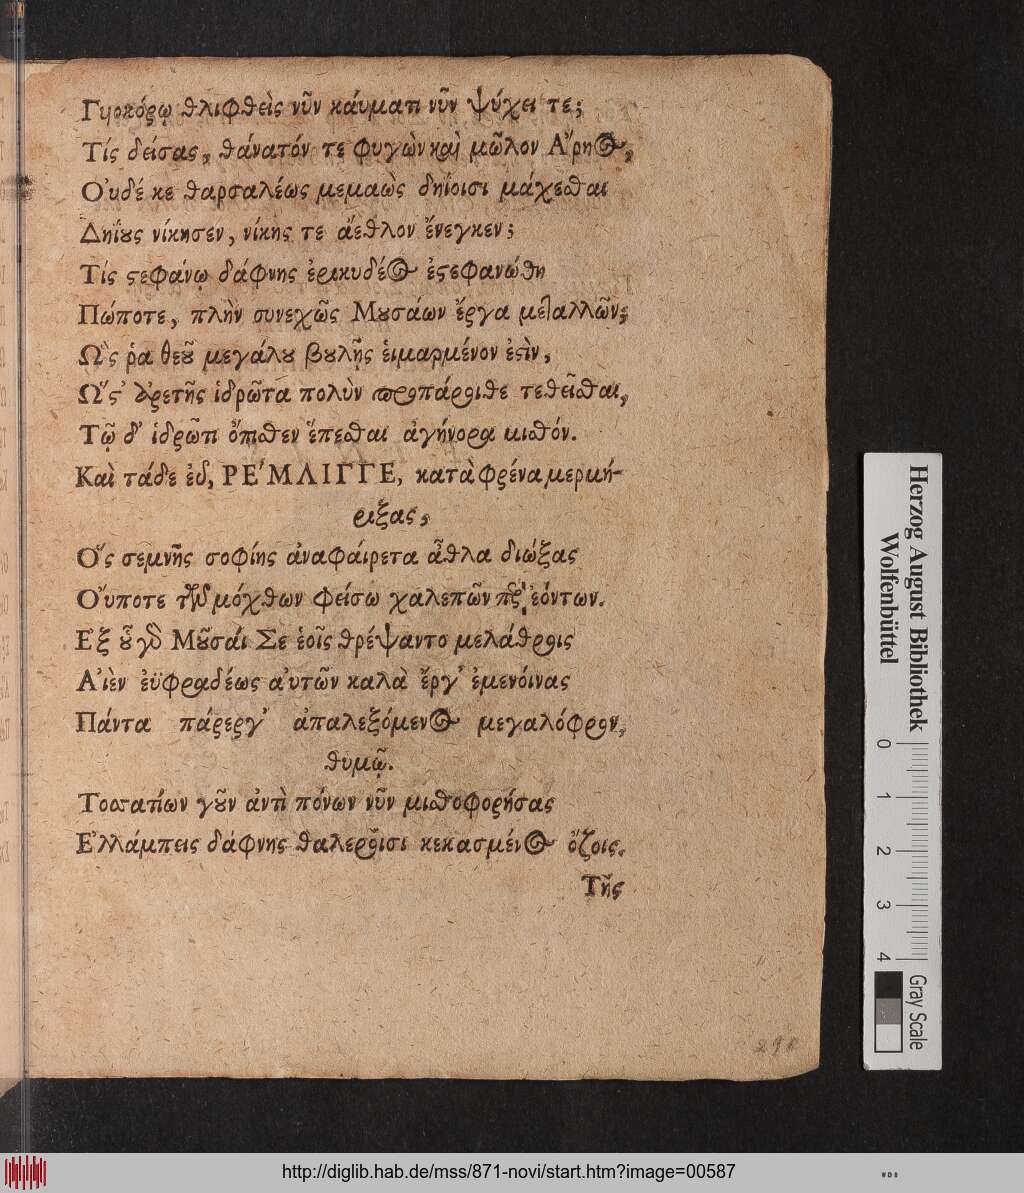 Γηοκόρῳ θλιφθεὶς νῦν κάυματι νῦν ψύχει τε;
Τίς δείσας, θάνατόν τε φυγὼν καὶ μῶλον Ἄρηος,
Οὐδέ κε θαρσαλέως μεμαὼς δηίοισι μάχεσθαι
Δηΐους νίκησεν, νίκης τε ἄεθλον ἔνεγκεν;
Τίς στεφάνῳ δάφνης ἐρικυδέος ἐστεφανώθη
Πώποτε, πλὴν συνεχῶς Μουσάων ἔργα μεταλλῶν;
Ὣς ῥα θεοῦ μεγάλου βουλῆς εἱμαρμένον ἐστὶν,
Ὥστ' ἀρετῆς ἱδρῶτα πολὺν προπάροιθε τεθεῖσθαι,
Τῷ δ' ἱδρῶτι ὄπισθεν ἕπεσθαι ἀγήνορα μισθόν.
Καὶ τάδε ἐὺ, ΡΕΜΛΙΓΓΕ, κατὰ φρένα μερμή-
ριξας,
Ὅς σεμνῆς σοφίης ἀναφάιρετα ἆθλα διώξας
Οὔποτε τῶν μόχθων φείσω χαλεπῶν περ ἐόντων.
Ἐξ οὗ γὰρ Μοῦσάι Σε ἑοῖς θρέψαντο μελάθροις
Αἰὲν ἐϋφραδέως αὐτῶν καλὰ ἔργ' ἐμενόινας
Πάντα πάρεργ' ἀπαλεξόμενος μεγαλόφρονι
θυμῷ.
Τοσσατίων γοῦν ἀντὶ πόνων νῦν μισθοφορήσας
Ἐλλάμπεις δάφνης θαλεροῖσι κεκασμένος ὄζοις.
Τῆς
290
Herzog August Bibliothek
Wolfenbüttel
0 1 2 3 4
Gray Scale
http://diglib.hab.de/mss/871-novi/start.htm?image=00587